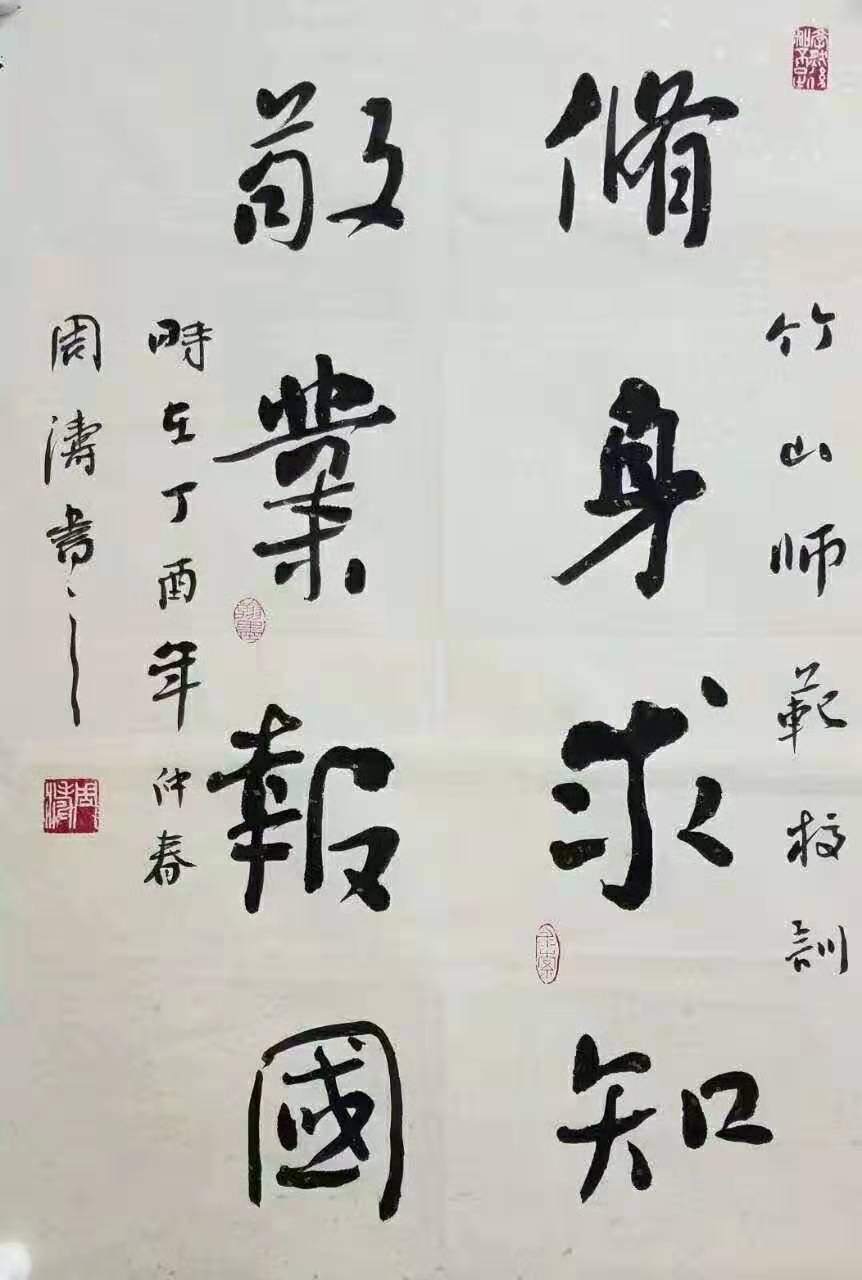 竹山师範校訓
脩身求知
敬業報國
時在丁酉年仲春
周濤書之
周涛